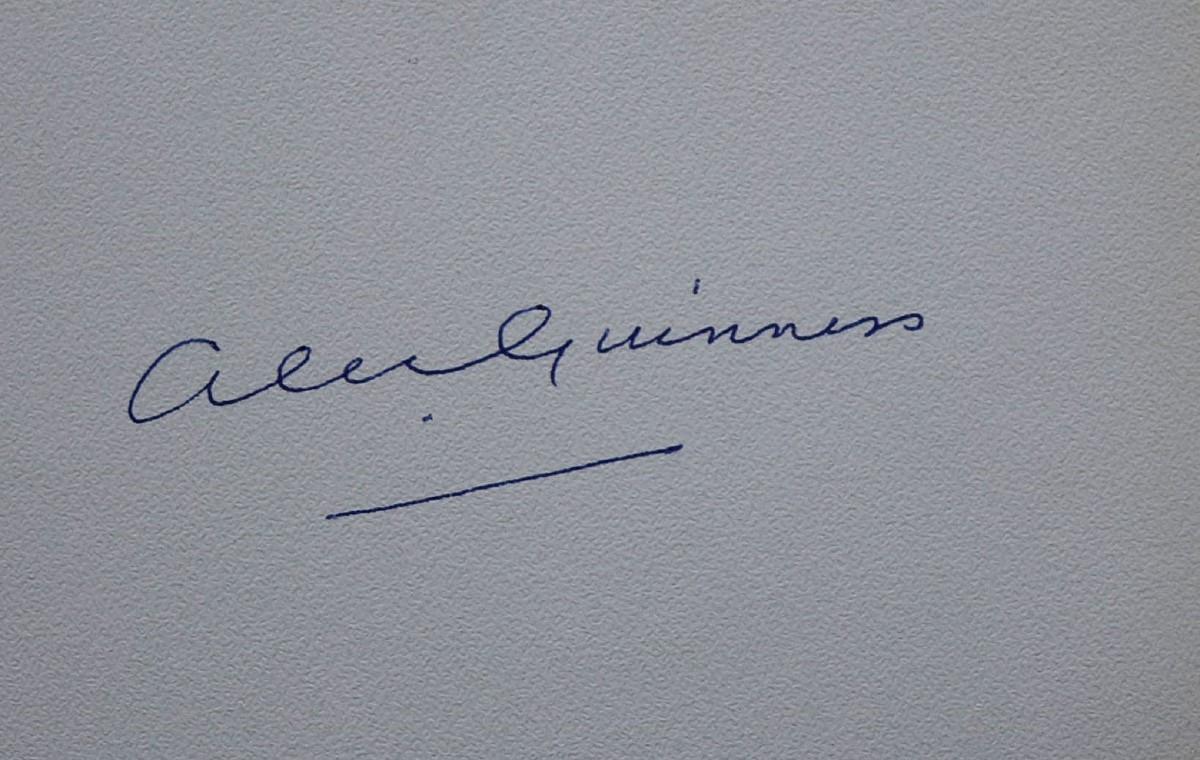 Alec Guinness